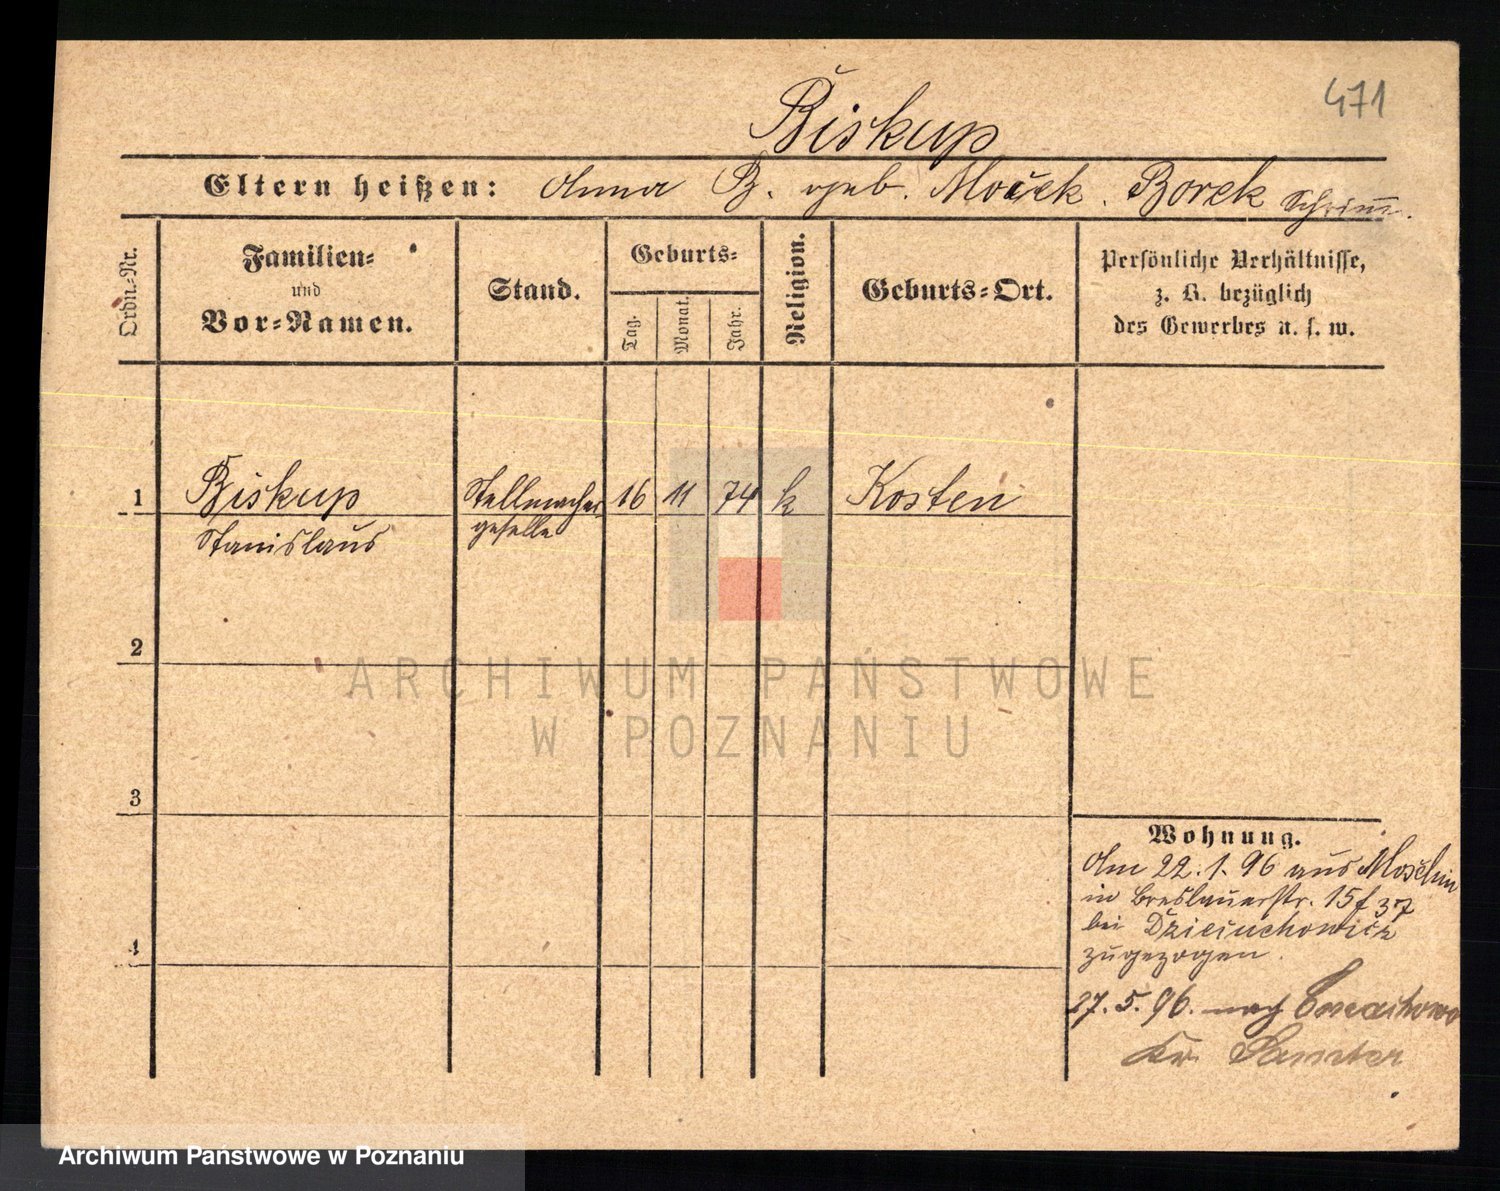 471
Biskup
Eltern heißen: Anna B. geb. Mocek. Borek Schrimm.
Ordn.-Nr.
Familien-
und
Vor-Namen.
Stand.
Geburts-
Tag.
Monat.
Jahr.
Religion.
Geburts-Ort.
Persönliche Verhältnisse,
z. B. bezüglich
des Gewerbes u. s. w.
1 Biskup Stellmacher- 16 11 74 k Kosten
Stanislaus geselle
2
3
4
Wohnung.
Am 22.1.96 aus Moschin
in Breslauerstr. 15 f 37
bei
zugezogen.
27.5.96. nach
Kr. Samter
ARCHIWUM PAŃSTWOWE
W POZNANIU
Archiwum Państwowe w Poznaniu